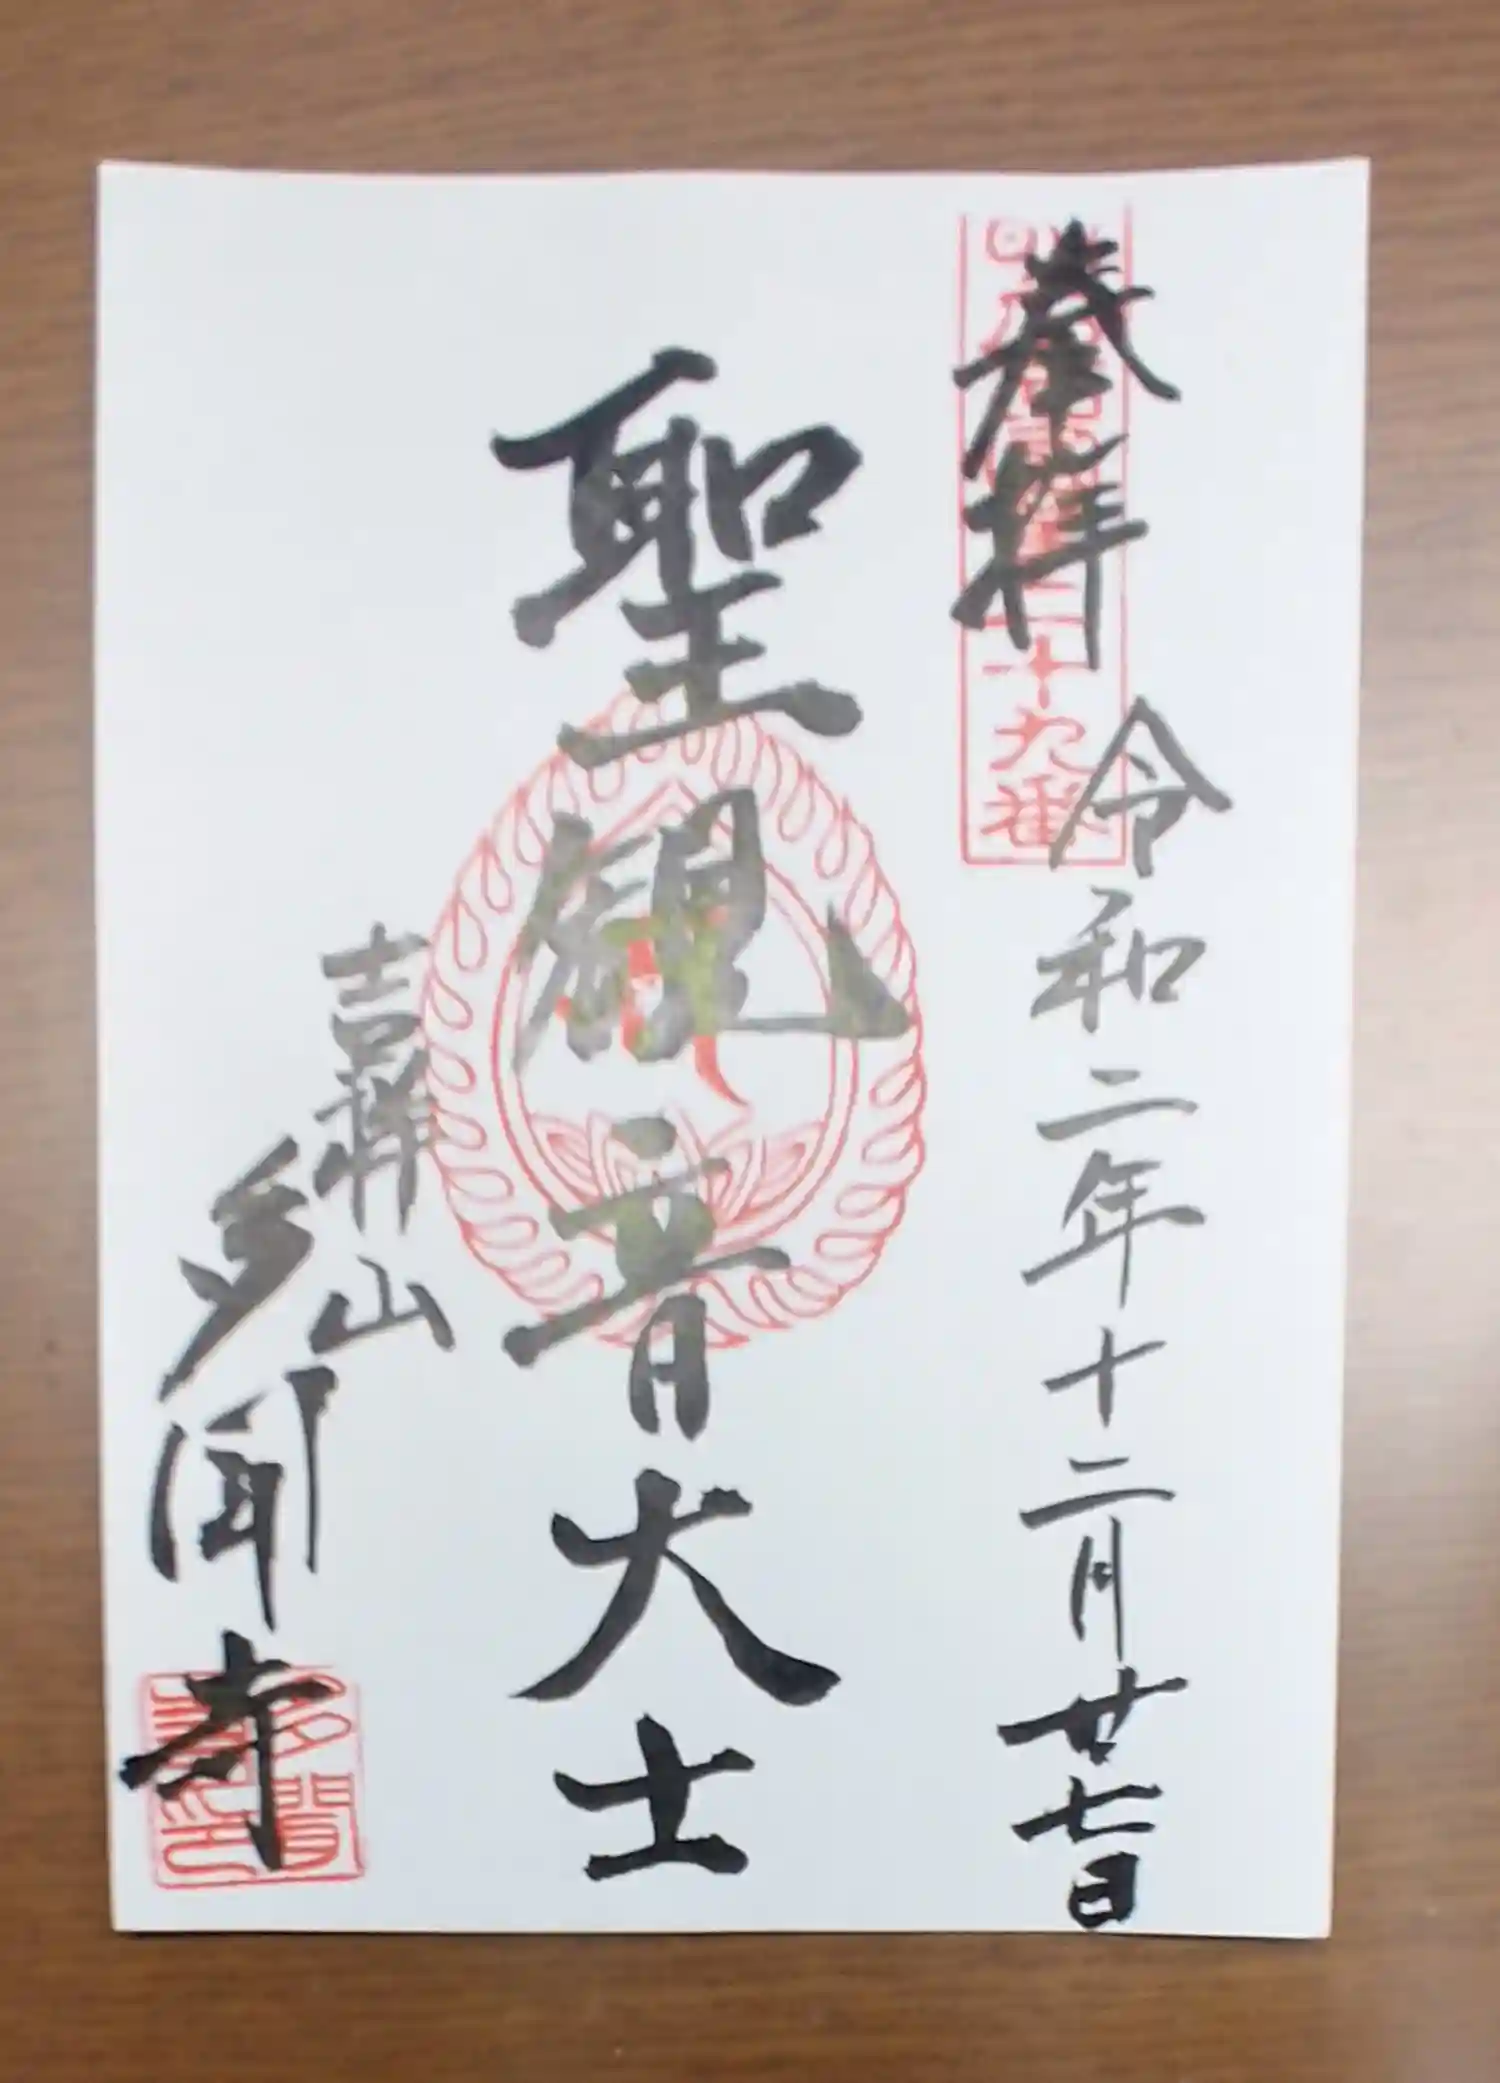 奉拝
二十九番
令和二年十二月廿七日
聖観音大士
吉祥山
多聞寺